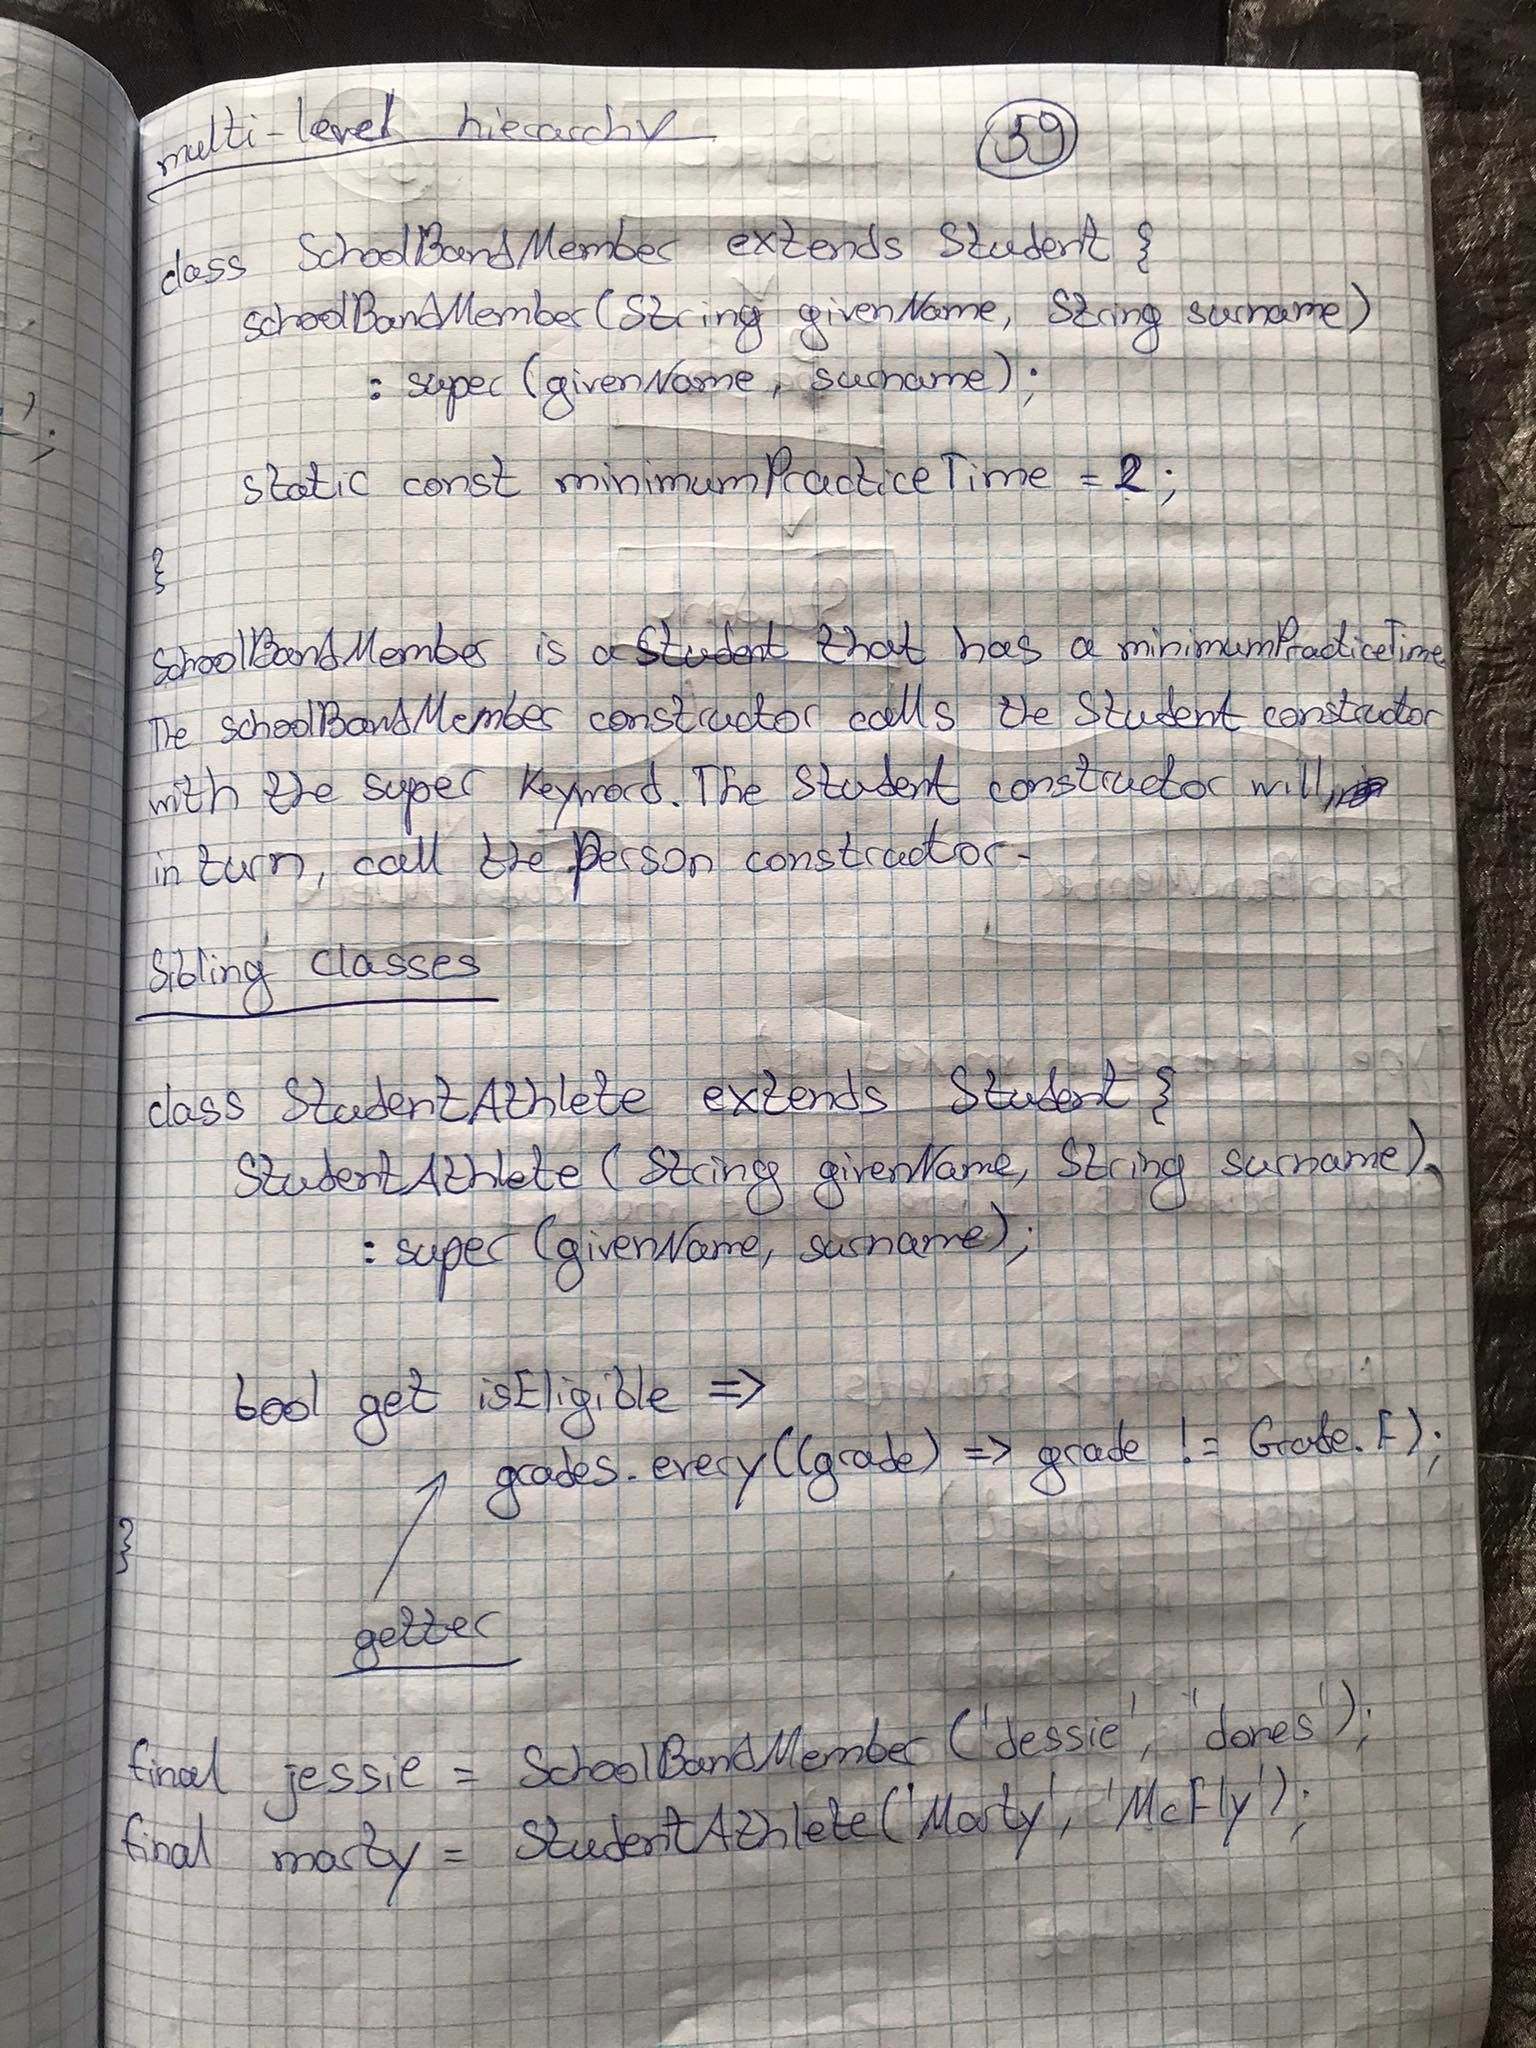 multi-level hierarchy
59
class SchoolBandMember extends Student {
schoolBandMember(String givenName, String surname)
: super (givenName, surname);
static const minimumPracticeTime = 2;
}
SchoolBandMember is a Student that has a minimumPracticeTime
The schoolBandMember constructor calls the Student constructor
with the super keyword. The Student constructor will,
in turn, call the Person constructor.
Sibling classes
class StudentAthlete extends Student {
StudentAthlete (String givenName, String surname)
: super (givenName, surname);
bool get isEligible =>
grades.every((grade) => grade != Grade.F);
}
getter
final jessie = SchoolBandMember ('Jessie', 'Jones');
final marty = StudentAthlete('Marty', 'McFly');
);